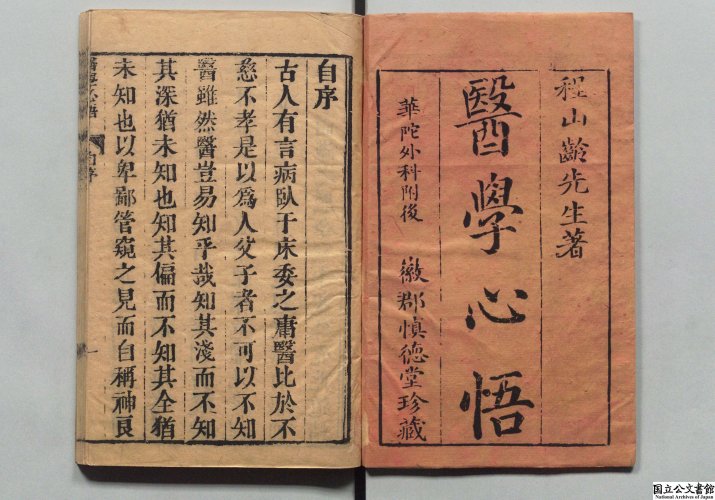 程山齡先生著
醫學心悟
華陀外科附後　徽郡慎德堂珍藏
自序
古人有言病臥于床委之庸醫比於不
慈不孝是以爲人父子者不可以不知
醫雖然醫豈易知乎哉知其淺而不知
其深猶未知也知其偏而不知其全猶
未知也以卑鄙管窺之見而自稱神良
醫學心悟
自序
国立公文書館
National Archives of Japan